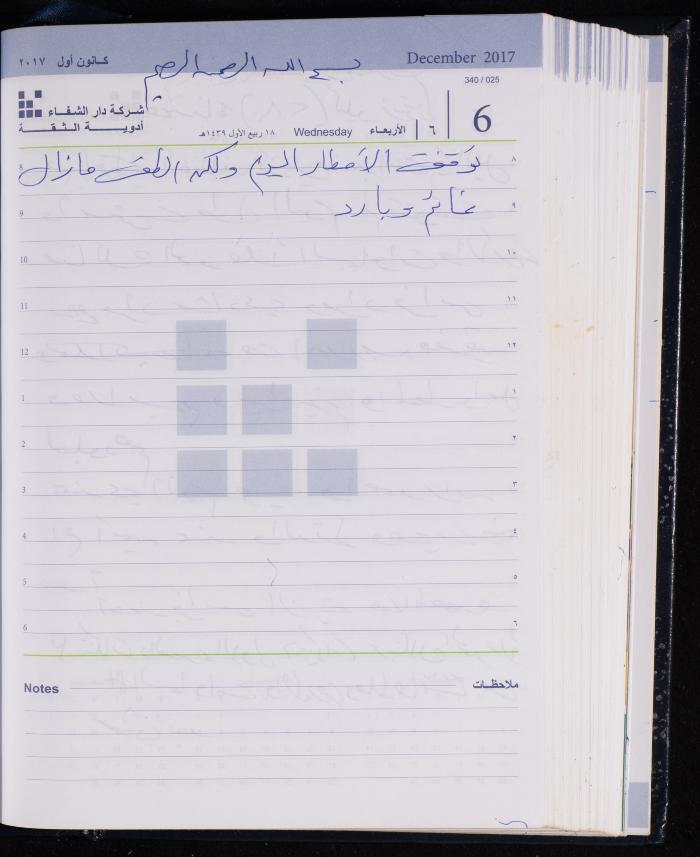 كانون أول ٢٠١٧
بسم الله الرحمن الرحيم
December 2017
340 / 025
شركة دار الشفاء
أدويـــة الـثـقـــة
١٨ ربيع الأول ١٤٣٩هـ Wednesday الأربعاء ٦ 6
توقفت الأمطار اليوم ولكن الطقس مازال
8 ٨
غائم وبارد
9 ٩
10 ١٠
11 ١١
12 ١٢
1 ١
2 ٢
3 ٣
4 ٤
5 ٥
6 ٦
Notes ملاحظات